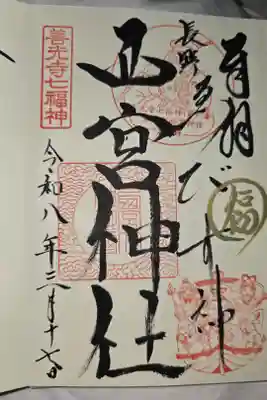 奉拝
長野
びす神
福
西宮神社
善光寺七福神
令和八年三月十七日